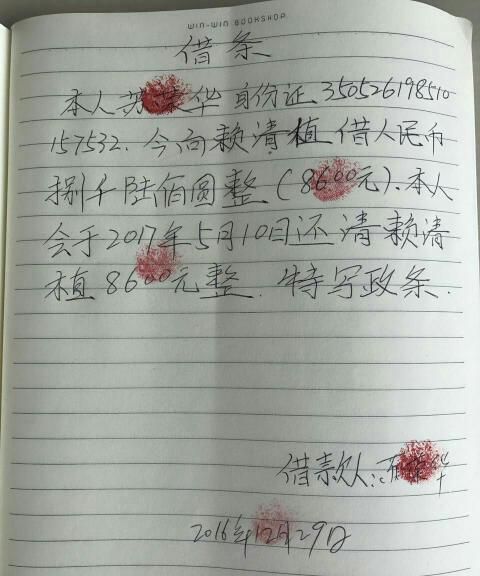 WIN-WIN BOOKSHOP
借条
本人苏荣华 身份证 350526198510
157532. 今向赖清植 借人民币
捌千陆佰圆整(8600元).本人
会于2017年5月10日还清赖清
植8600元整. 特写政条.
借款人: 华
2016年12月29日